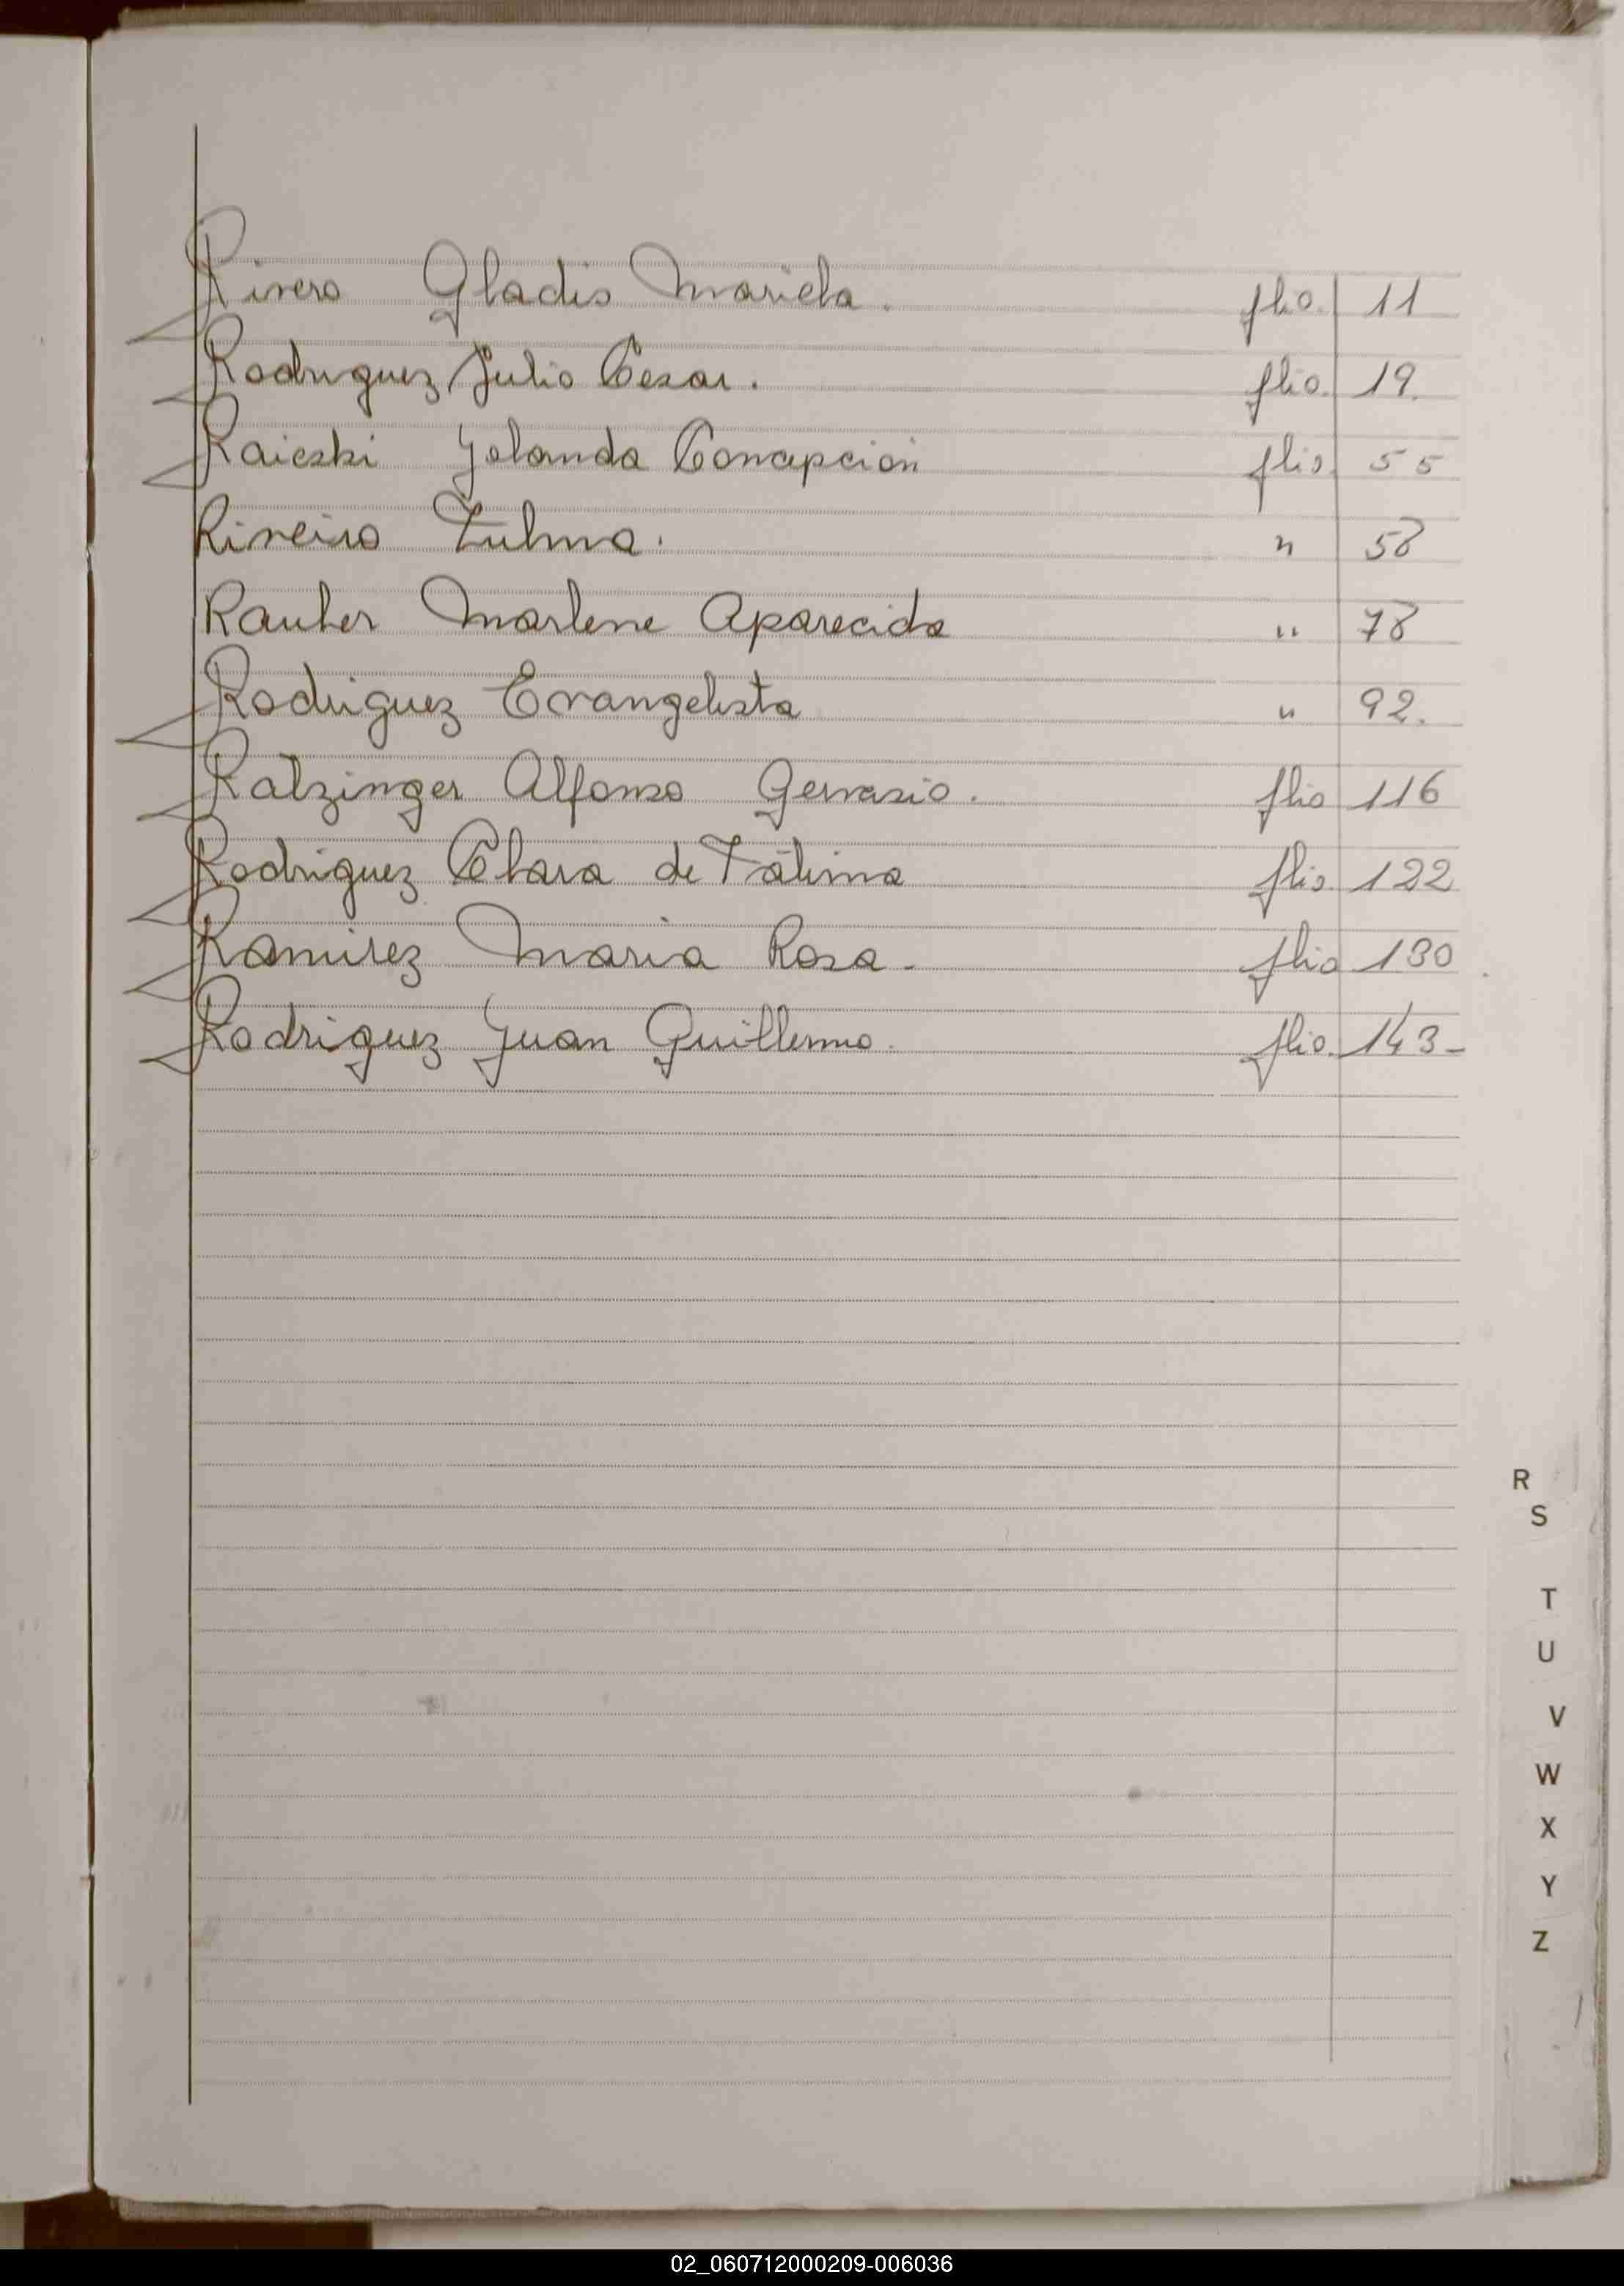 Rivero Gladis Mariela. flio. 11
Rodriguez Julio Cesar. flio. 19.
Raieski Yolanda Concepción flio. 55
Riveiro Zulma. " 58
Rauber Marlene Aparecida " 78
Rodriguez Evangelista " 92.
Ratzinger Alfonso Gervasio. flio 116
Rodriguez Clara de Fátima flio. 122
Ramirez Maria Rosa. flio 130
Rodriguez Juan Guillermo. flio. 143-
R
S
T
U
V
W
X
Y
Z
02_060712000209-006036